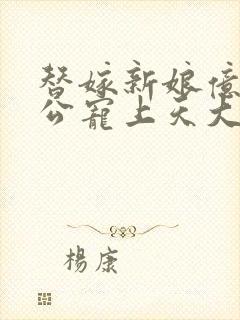 替嫁新娘億
公寵上天大
楊康